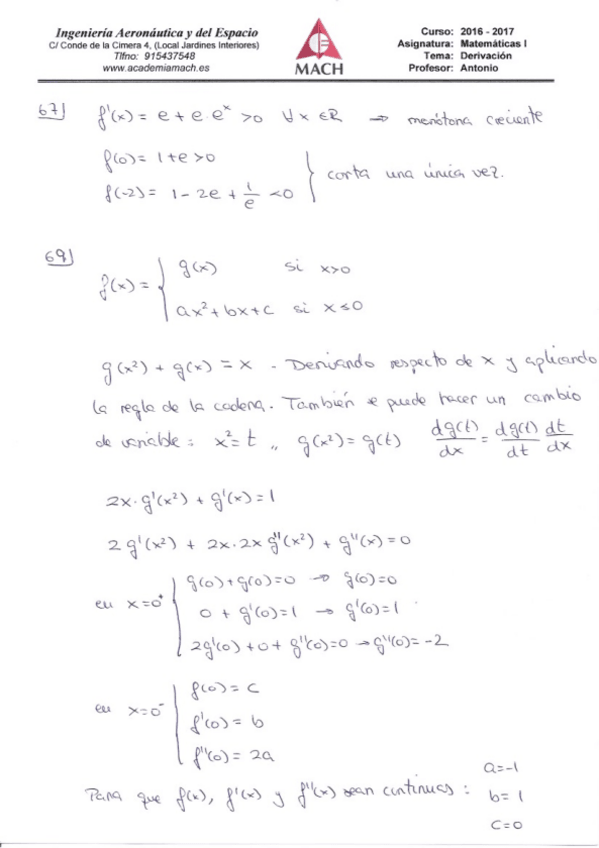 Ingeniería Aeronáutica y del Espacio
C/ Conde de la Cimera 4, (Local Jardines Interiores)
Tlfno: 915437548
www.academiamach.es
MACH
Curso: 2016 - 2017
Asignatura: Matemáticas I
Tema: Derivación
Profesor: Antonio
67| f'(x) = e + e·eˣ >0 ∀x∈R → monótona creciente
f(0) = 1+e >0
f(-2) = 1 - 2e + 1/e <0 } corta una única vez.
69|
f(x) = { g(x) si x>0
ax²+bx+c si x≤0
g(x²) + g(x) = x . Derivando respecto de x y aplicando
la regla de la cadena. También se puede hacer un cambio
de variable: x²=t ,, g(x²) = g(t) dg(t)/dx = dg(t)/dt dt/dx
2x·g'(x²) + g'(x) = 1
2g'(x²) + 2x·2x g''(x²) + g''(x) = 0
en x=0⁺ { g(0)+g(0)=0 → g(0)=0
0 + g'(0)=1 → g'(0)=1
2g'(0)+0+g''(0)=0 → g''(0)=-2
en x=0⁻ { f(0) = c
f'(0) = b
f''(0) = 2a
Para que f(x), f'(x) y f''(x) sean continuas :
a=-1
b=1
c=0